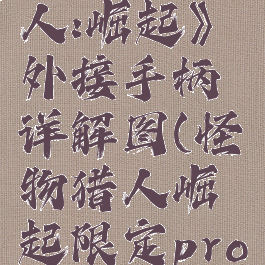 人:崛起》
外接手柄
详解图(怪
物猎人崛
起限定pro